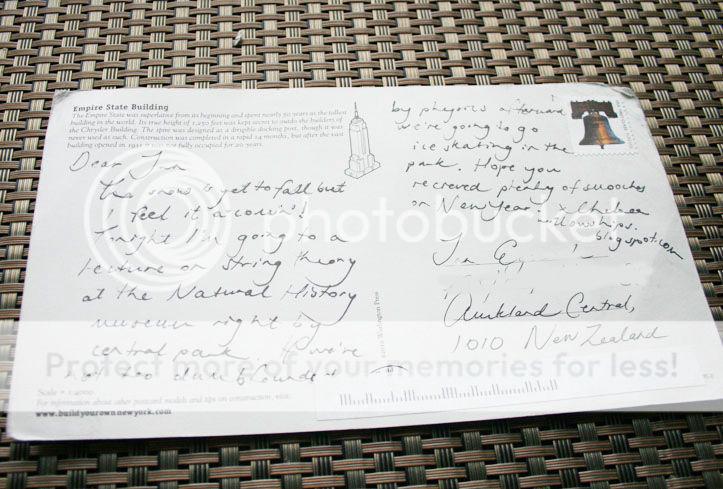 Empire State Building
The Empire State was superlative from its beginning and spent nearly 50 years as the tallest
building in the world. Its true height of 1,250 feet was kept secret to outdo the builders of
the Chrysler Building. The spire was designed as a dirigible docking post, though it was
never used as such. Construction was completed in a rapid 14 months, but after the vast
building opened in 1931 it was not fully occupied for 20 years.
Dear
the snow is yet to fall but
I feel it a comin'!
Tonight I'm going to a
lecture on String theory
at the Natural History
museum right by
central park. If we're
not too dumbfounded
by physics afterward
we're going to go
ice skating in the
park. Hope you
received plenty of smooches
on New Year, x Chelsea
willowships.
blogspot.com
Auckland Central,
1010 New Zealand
Scale = 1:4000
For information about other postcard models and tips on construction, visit:
www.buildyourownnewyork.com
photobucket
Protect more of your memories for less!